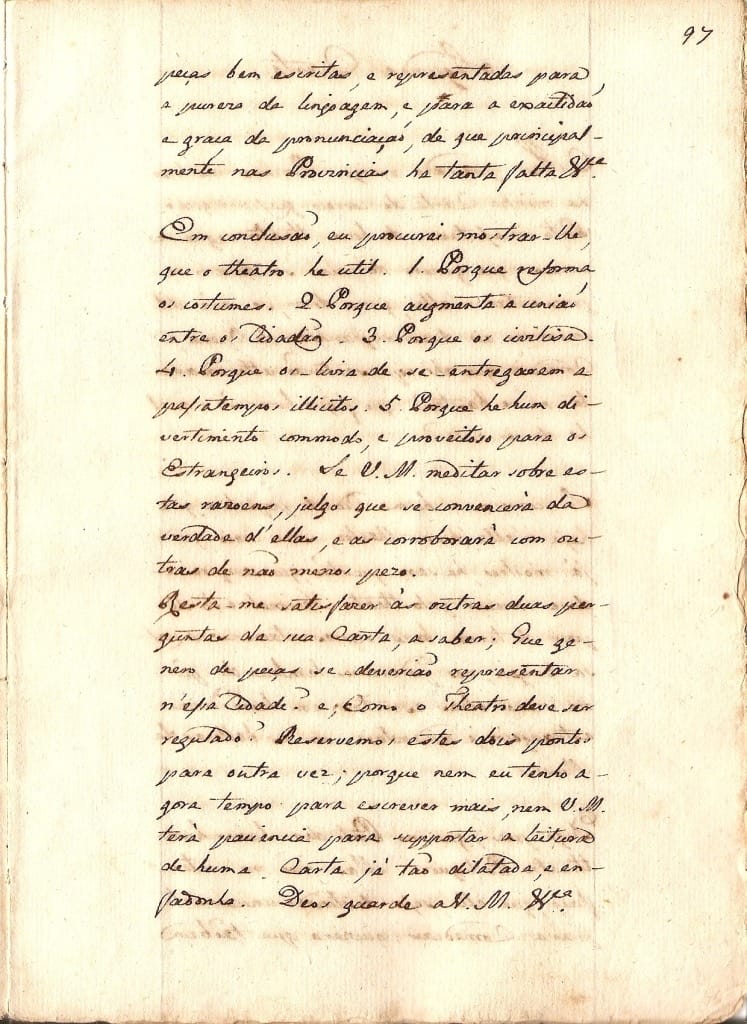 97
peças bem escritas, e representadas para
a pureza da lingoagem, e para a exactidaõ
e graça da pronunciaçaõ, de que principal-
mente nas Provincias ha tanta falta &ca.
Em conclusaõ, eu procurei mostrar-lhe,
que o theatro he util. 1. Porque reforma
os costumes. 2. Porque augmenta a uniaõ
entre os Cidadaõs. 3. Porque os civilisa.
4. Porque os-livra de se-entregarem a
passatempos illicitos. 5. Porque he hum di-
vertimento commodo, e proveitoso para os
Estrangeiros. Se V. M. meditar sobre es-
tas razoens, julgo que se convencerà da
verdade d'ellas, e as corroborarà com ou-
tras de naõ menos pezo.
Resta-me satisfazer às outras duas per-
guntas da sua Carta, a saber; Que ge-
nero de peças se deveriaõ representar
n'essa Cidade? e; Como o Theatro deve ser
regulado? Reservemos estes dois pontos
para outra vez; porque nem eu tenho a-
gora tempo para escrever mais, nem V. M.
terà paciencia para supportar a leitura
de huma Carta jà taõ dilatada, e en-
fadonha. Deos guarde a V. M. &ca.